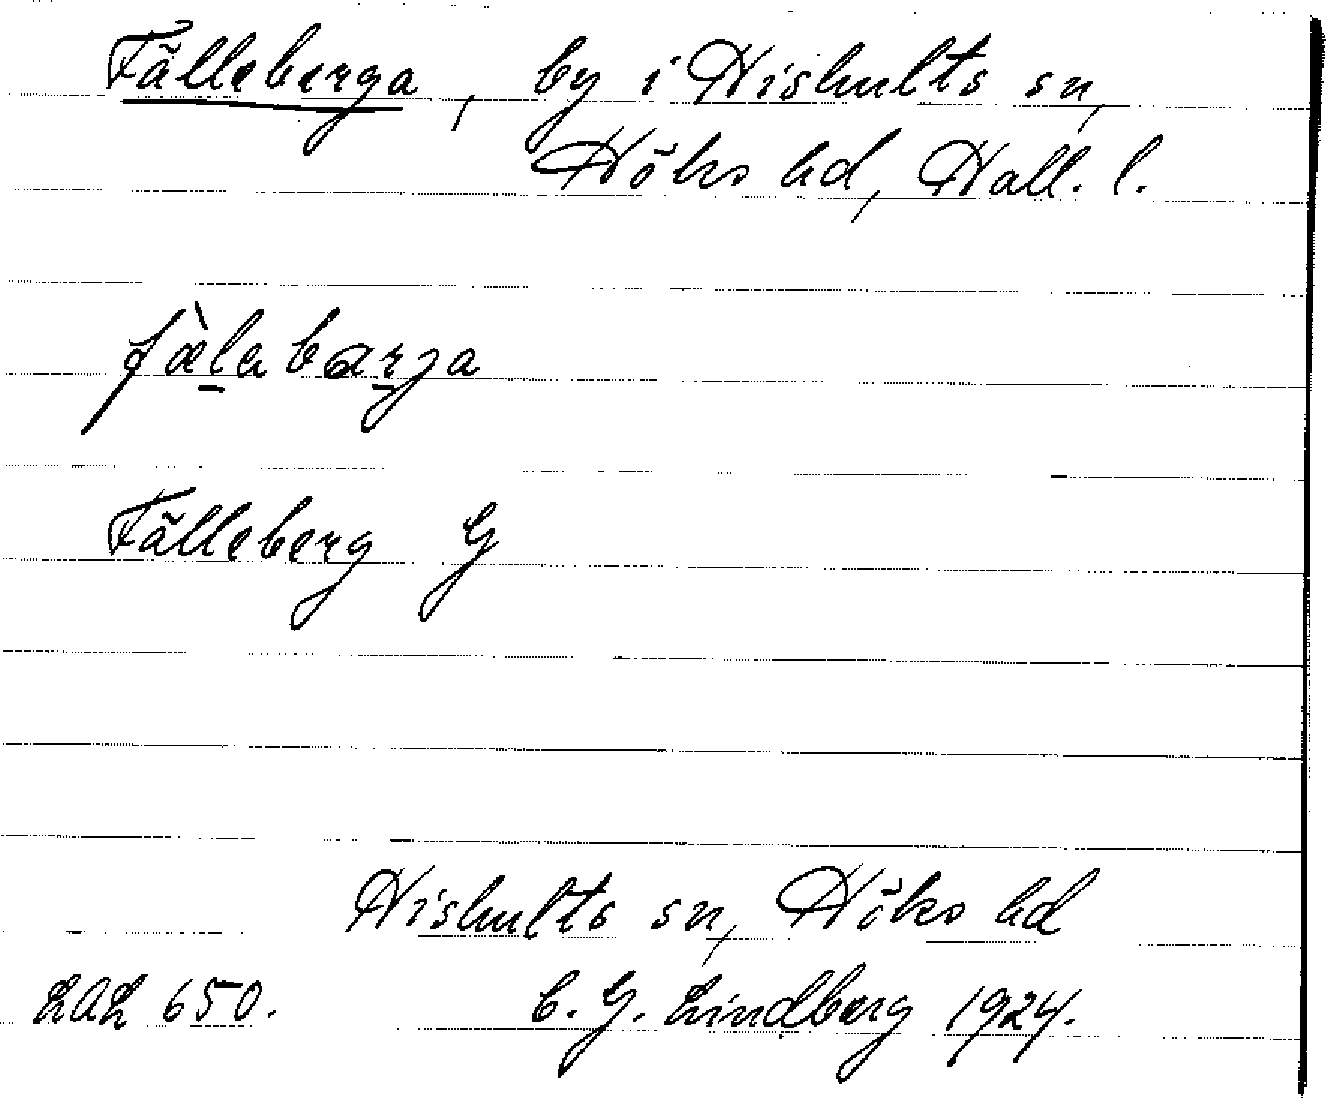 Fälleberga, by i Hishults sn,
Höks hd, Hall. l.
fæ̀l̠abærja
Fälleberg G
Hishults sn, Höks hd
LAL 650. C. G. Lindberg 1924.